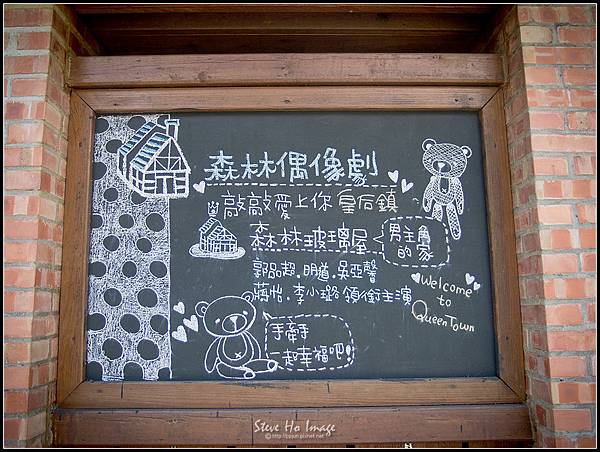 森林偶像劇
敲敲愛上你 皇后鎮
森林玻璃屋
男主角
的家
郭品超．明道．吳亞馨
蔣怡．李小璐 領銜主演
Welcome
to
QueenTown
手牽手
一起幸福吧！
Steve Ho Image
©http://ppjun.pixnet.net